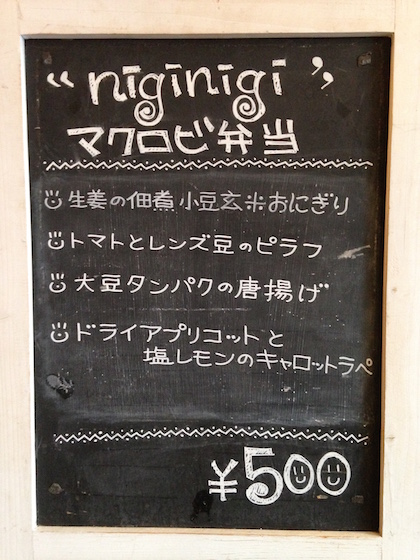 “niginigi”
マクロビ弁当
生姜の佃煮 小豆玄米おにぎり
トマトとレンズ豆のピラフ
大豆タンパクの唐揚げ
ドライアプリコットと
塩レモンのキャロットラペ
¥500